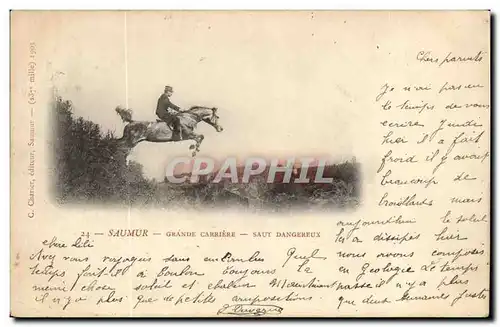 G. Charier, éditeur, Saumur — (15me mille) 1901
CPHIL
24 — SAUMUR — GRANDE CARRIÈRE — SAUT DANGEREUX
Chers parents
Je n'ai pas eu
le temps de vous
écrire Jeudi
hier il a fait
froid il y avait
beaucoup de
brouillards mais
aujourd'hui le soleil
l'a dissipés hier
nous avons composé
en Géologie de temps
passe il n'y a plus
que deux semaines juste
Chère Lili
Avez vous voyagé sans encombre Quel
temps fait-il à Toujours la
même chose soleil et chaleur
il n'y a plus que de petites compositions